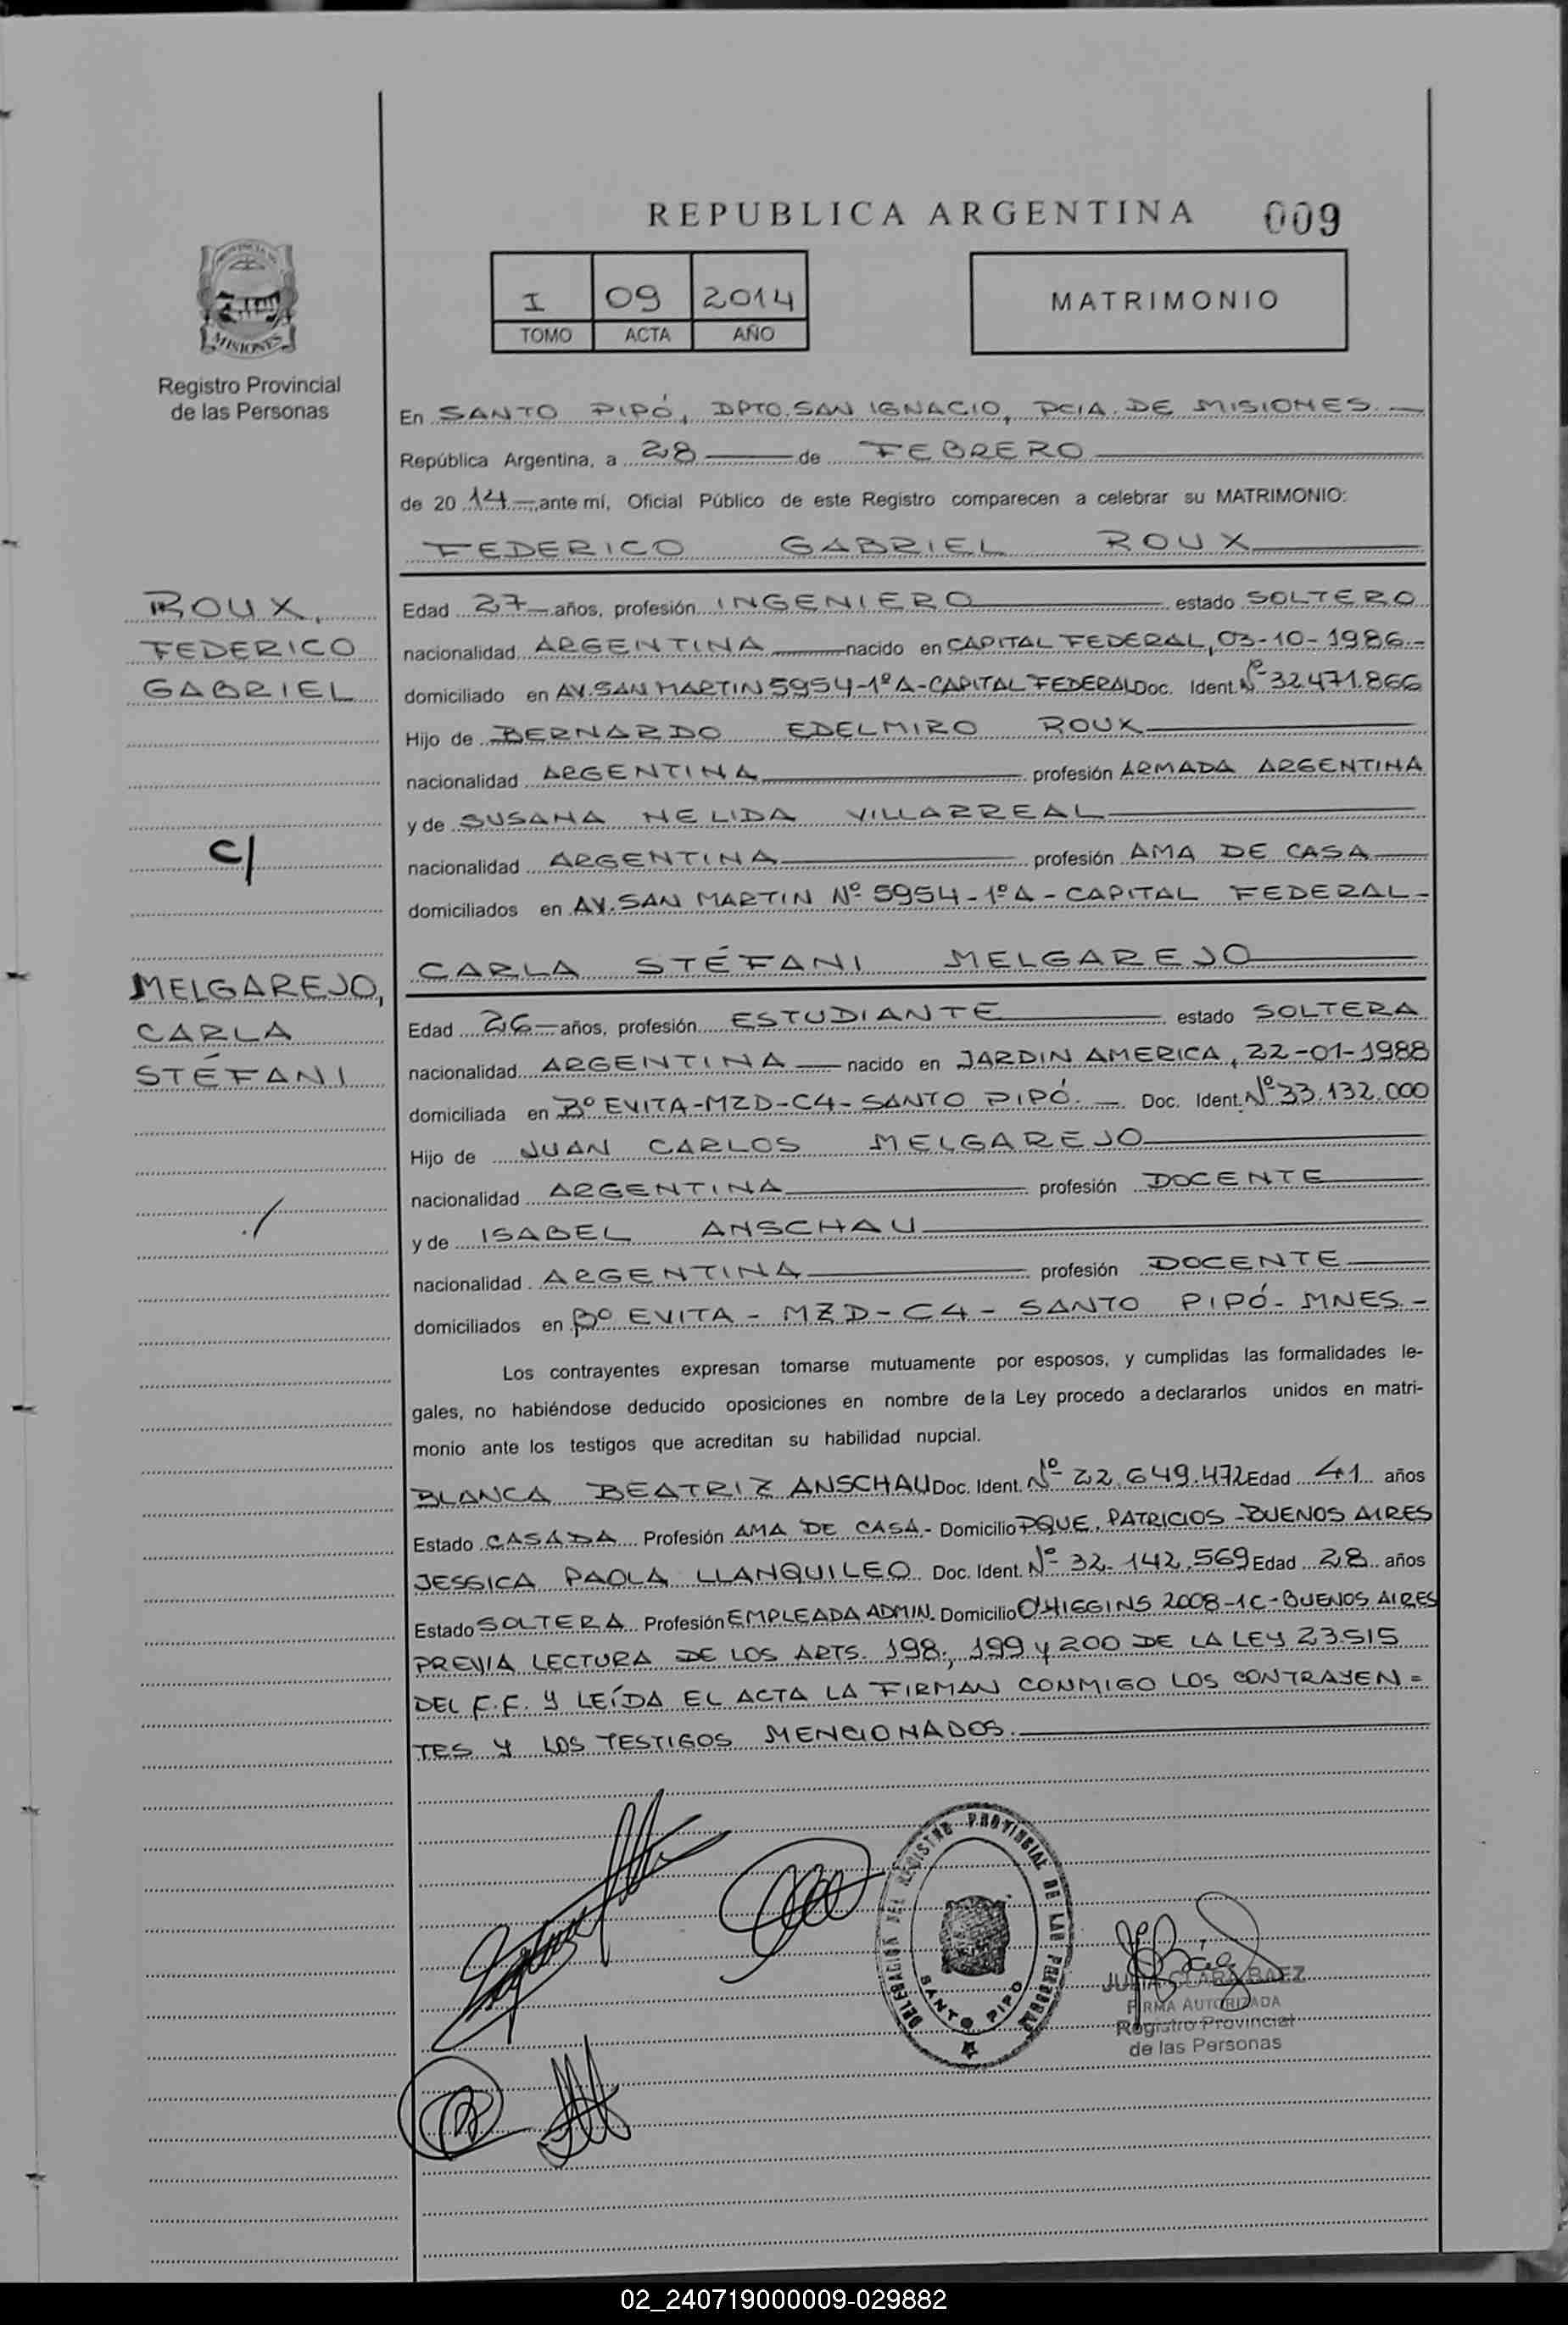 REPUBLICA ARGENTINA 009
I 09 2014
TOMO ACTA AÑO
MATRIMONIO
MISIONES
Registro Provincial
de las Personas
En SANTO PIPÓ, DPTO. SAN IGNACIO, PCIA. DE MISIONES.—
República Argentina, a 28 — de FEBRERO —
de 20 14 — ante mí, Oficial Público de este Registro comparecen a celebrar su MATRIMONIO:
FEDERICO GABRIEL ROUX —
ROUX,
FEDERICO
GABRIEL
C/
MELGAREJO,
CARLA
STÉFANI
./
Edad 27 — años, profesión INGENIERO — estado SOLTERO
nacionalidad ARGENTINA — nacido en CAPITAL FEDERAL, 03-10-1986.-
domiciliado en AV. SAN MARTIN 5954-1º A-CAPITAL FEDERAL Doc. Ident. Nº 32.471.866
Hijo de BERNARDO EDELMIRO ROUX —
nacionalidad ARGENTINA — profesión ARMADA ARGENTINA
y de SUSANA NELIDA VILLARREAL —
nacionalidad ARGENTINA — profesión AMA DE CASA —
domiciliados en AV. SAN MARTIN Nº 5954-1º A - CAPITAL FEDERAL -
CARLA STÉFANI MELGAREJO —
Edad 26 — años, profesión ESTUDIANTE — estado SOLTERA
nacionalidad ARGENTINA — nacido en JARDIN AMERICA, 22-01-1988
domiciliada en Bº EVITA-MZD-C4- SANTO PIPÓ. — Doc. Ident. Nº 33.132.000
Hijo de JUAN CARLOS MELGAREJO —
nacionalidad ARGENTINA — profesión DOCENTE —
y de ISABEL ANSCHAU —
nacionalidad ARGENTINA — profesión DOCENTE —
domiciliados en Bº EVITA - MZD-C4 - SANTO PIPÓ - MNES. -
Los contrayentes expresan tomarse mutuamente por esposos, y cumplidas las formalidades le-
gales, no habiéndose deducido oposiciones en nombre de la Ley procedo a declararlos unidos en matri-
monio ante los testigos que acreditan su habilidad nupcial.
BLANCA BEATRIZ ANSCHAU Doc. Ident. Nº 22.649.472 Edad 41 años
Estado CASADA Profesión AMA DE CASA - Domicilio PQUE. PATRICIOS - BUENOS AIRES
JESSICA PAOLA LLANQUILEO Doc. Ident. Nº 32.142.569 Edad 28 años
Estado SOLTERA Profesión EMPLEADA ADMIN. Domicilio O'HIGGINS 2008-1C-BUENOS AIRES
PREVIA LECTURA DE LOS ARTS. 198, 199 y 200 DE LA LEY 23.515
DEL F.F. Y LEÍDA EL ACTA LA FIRMAN CONMIGO LOS CONTRAYEN=
TES Y LOS TESTIGOS MENCIONADOS. —
DELEGACIÓN DEL REGISTRO PROVINCIAL DE LAS PERSONAS
SANTO PIPO
JULIA CLARA BAEZ
FIRMA AUTORIZADA
Registro Provincial
de las Personas
02_240719000009-029882